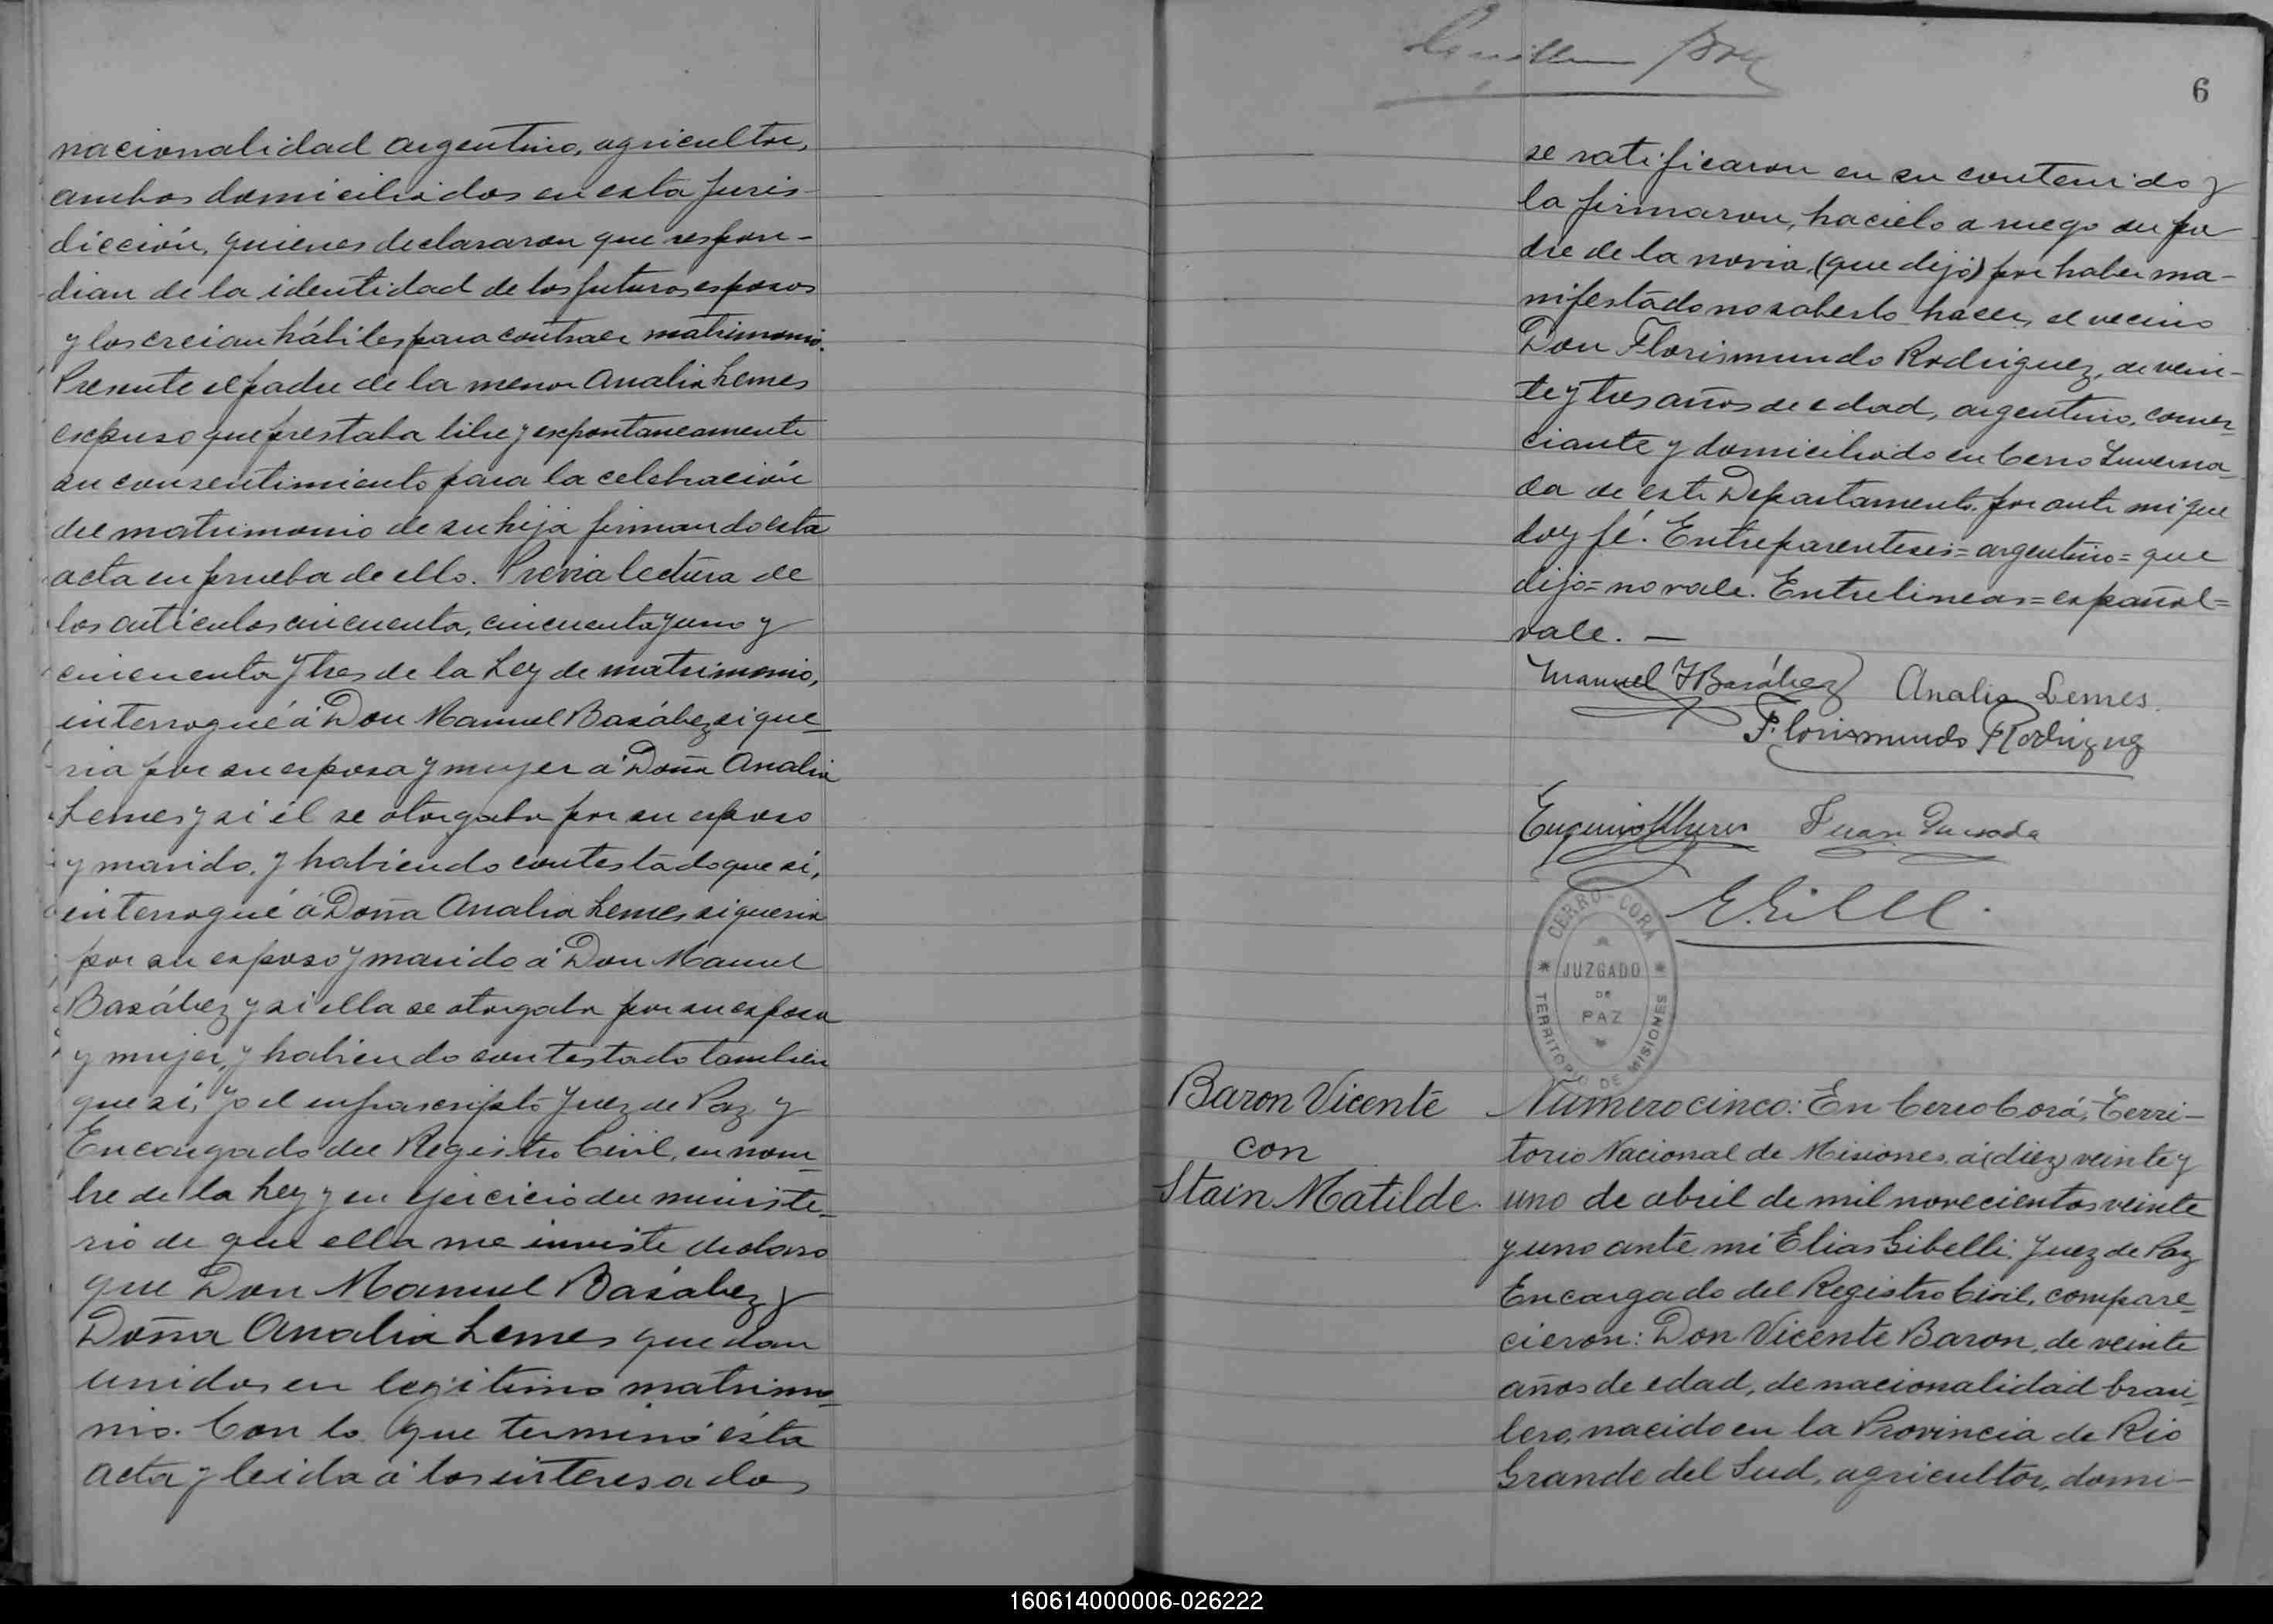 nacionalidad argentino, agricultor,
ambos domiciliados en esta juris-
dicción, quienes declararon que respon-
dian de la identidad de los futuros esposos
y los creian hábiles para contraer matrimonio.
Presente el padre de la menor Analia Lemes
expuso que prestaba libre y espontaneamente
su consentimiento para la celebración
del matrimonio de su hija firmando esta
acta en prueba de ello. Previa lectura de
los articulos cincuenta, cincuenta y uno y
cincuenta y tres de la Ley de matrimonio,
interrogué á Don Manuel Basábez si que-
ria por su esposa y mujer a Doña Analia
Lemes y si él se otorgaba por su esposo
y marido, y habiendo contestado que si,
interrogué á Doña Analia Lemes si queria
por su esposo y marido á Don Manuel
Basábez y si ella se otorgaba por su esposa
y mujer, y habiendo contestado tambien
que si, yo el infrascripto Juez de Paz y
Encargado del Registro Civil, en nom-
bre de la Ley y en ejercicio del ministe-
rio de que ella me inviste declaro
que Don Manuel Basábez y
Doña Analia Lemes quedan
unidos en legitimo matrimo-
nio. Con lo que terminó ésta
acta y leida á los interesados
6
se ratificaron en su contenido y
la firmaron, hacielo a ruego du pa
dre de la novia (que dijo) por haber ma-
nifestado no saberlo hacer, el vecino
Don Florismundo Rodriguez, de vein-
te y tres años de edad, argentino, comer-
ciante y domiciliado en Cerro Inverna-
da de este Departamento, por ante mi que
doy fé. Entreparentesis = argentino = que
dijo = no vale. Entrelineas = español =
vale. —
Manuel Basábez Analia Lemes.
Florismundo Rodriguez
Eugenio Juan Quesada
E. Gibelli.
CERRO-CORÁ
JUZGADO
DE
PAZ
TERRITORIO DE MISIONES
Baron Vicente
con
Stain Matilde.
Numero cinco: En Cerro Corá, Terri-
torio Nacional de Misiones, á (diez) veinte y
uno de abril de mil novecientos veinte
y uno ante mi Elias Gibelli, Juez de Paz
Encargado del Registro Civil, compare-
cieron: Don Vicente Baron, de veinte
años de edad, de nacionalidad brasi-
lero, nacido en la Provincia de Rio
Grande del Sud, agricultor, domi-
160614000006-026222